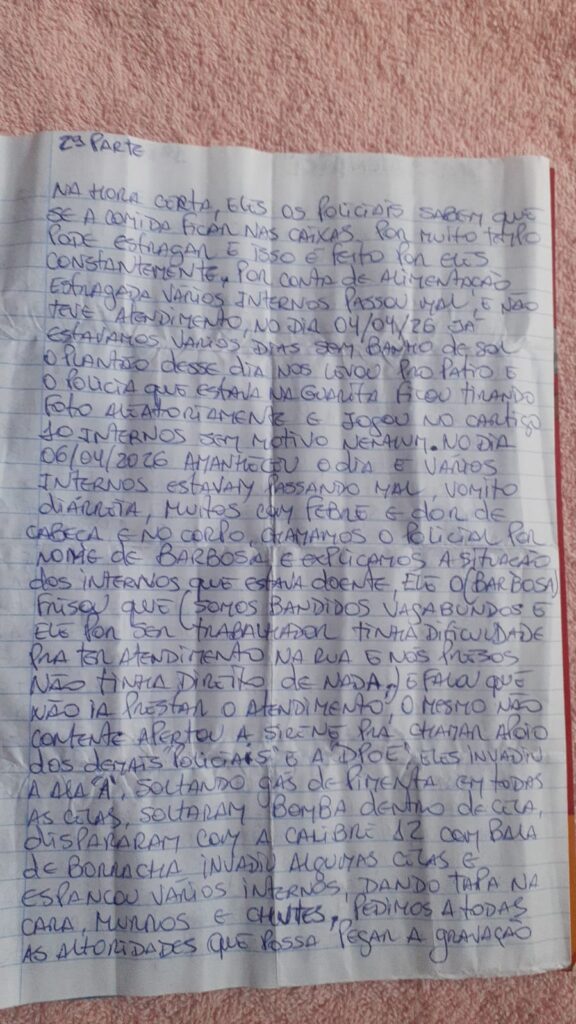 2ª PARTE
NA HORA CERTA, ELES OS POLICIAIS SABEM QUE
SE A COMIDA FICAR NAS CAIXAS POR MUITO TEMPO
PODE ESTRAGAR E ISSO É FEITO POR ELES
CONSTANTEMENTE, POR CONTA DE ALIMENTAÇÃO
ESTRAGADA VÁRIOS INTERNOS PASSOU MAL, E NÃO
TEVE ATENDIMENTO, NO DIA 04/04/26 JÁ
ESTAVAMOS VÁRIOS DIAS SEM BANHO DE SOL
O PLANTÃO DESSE DIA NOS LEVOU PRO PATIO E
O POLICIA QUE ESTAVA NA GUARITA FICOU TIRANDO
FOTO ALEATORIAMENTE E JOGOU NO CASTIGO
10 INTERNOS SEM MOTIVO NENHUM. NO DIA
06/04/2026 AMANHECEU O DIA E VÁRIOS
INTERNOS ESTAVAM PASSANDO MAL, VOMITO
DIÁRREIA, MUITOS COM FEBRE E DOR DE
CABEÇA E NO CORPO, CHAMAMOS O POLICIAL POR
NOME DE BARBOSA, E EXPLICAMOS A SITUAÇÃO
DOS INTERNOS QUE ESTAVA DOENTE, ELE O (BARBOSA)
FRISOU QUE (SOMOS BANDIDOS VAGABUNDOS E
ELE POR SER TRABALHADOR TINHA DIFICULDADE
PRA TER ATENDIMENTO NA RUA E NÓS PRESOS
NÃO TINHA DIREITO DE NADA,) E FALOU QUE
NÃO IA PRESTAR O ATENDIMENTO, O MESMO NÃO
CONTENTE APERTOU A SIRENE PRA CHAMAR APOIO
DOS DEMAIS POLICIAIS E A DPOE, ELES INVADIU
A ALA "A", SOLTANDO GÁS DE PIMENTA EM TODAS
AS CELAS, SOLTARAM BOMBA DENTRO DE CELA,
DISPARARAM COM A CALIBRE 12 COM BALA
DE BORRACHA INVADIU ALGUMAS CELAS E
ESPANCOU VÁRIOS INTERNOS, DANDO TAPA NA
CARA, MURROS E CHUTES, PEDIMOS A TODAS
AS AUTORIDADES QUE POSSA PEGAR A GRAVAÇÃO